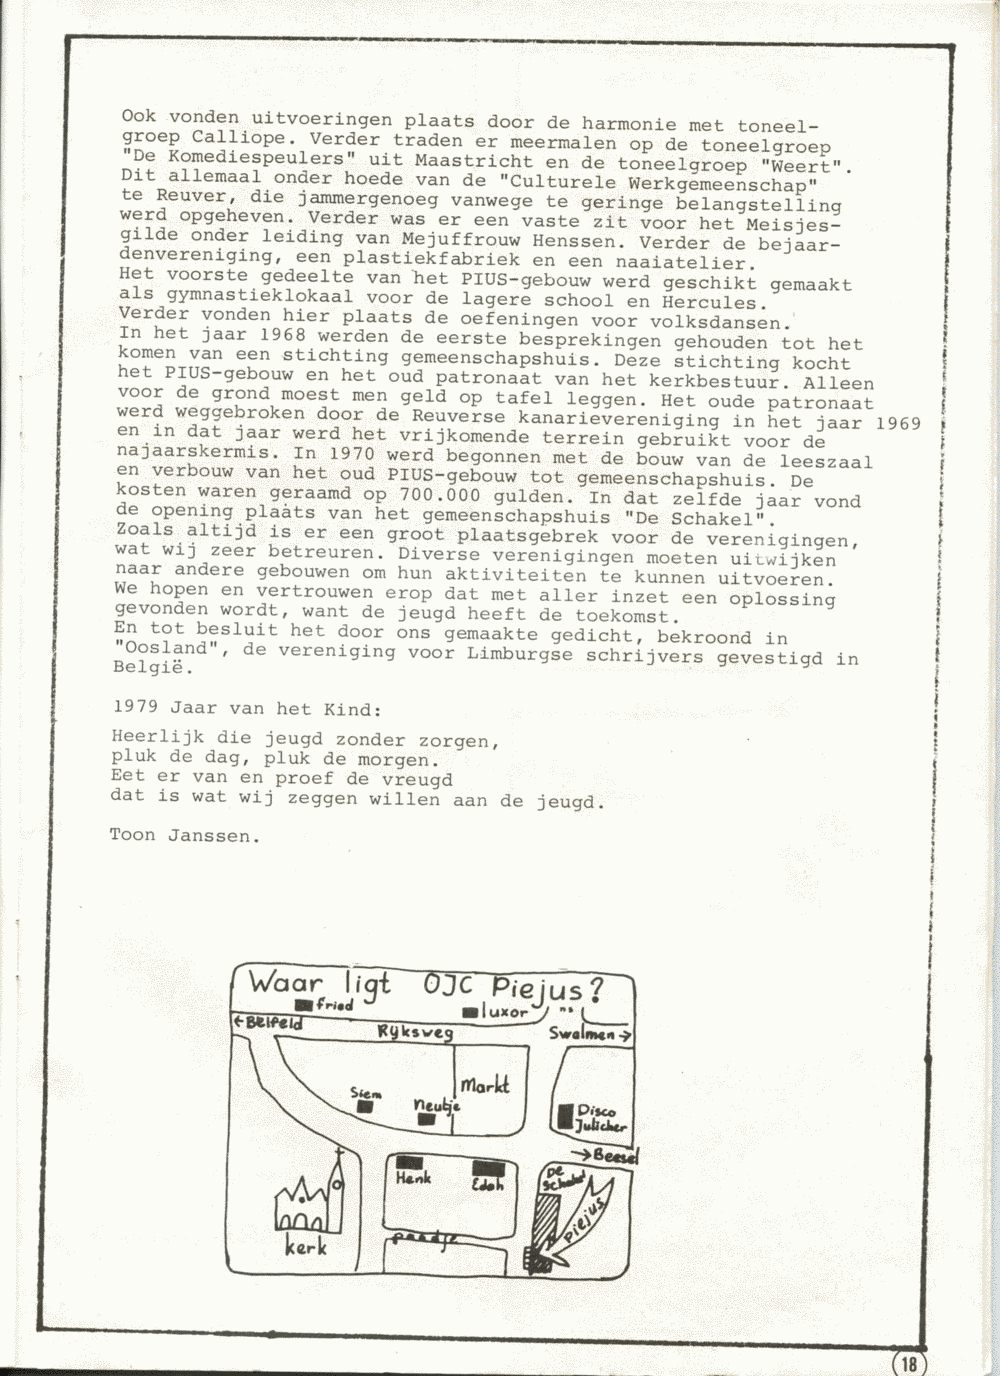 Ook vonden uitvoeringen plaats door de harmonie met toneel-
groep Calliope. Verder traden er meermalen op de toneelgroep
"De Komediespeulers" uit Maastricht en de toneelgroep "Weert".
Dit allemaal onder hoede van de "Culturele Werkgemeenschap"
te Reuver, die jammergenoeg vanwege te geringe belangstelling
werd opgeheven. Verder was er een vaste zit voor het Meisjes-
gilde onder leiding van Mejuffrouw Henssen. Verder de bejaar-
denvereniging, een plastiekfabriek en een naaiatelier.
Het voorste gedeelte van het PIUS-gebouw werd geschikt gemaakt
als gymnastieklokaal voor de lagere school en Hercules.
Verder vonden hier plaats de oefeningen voor volksdansen.
In het jaar 1968 werden de eerste besprekingen gehouden tot het
komen van een stichting gemeenschapshuis. Deze stichting kocht
het PIUS-gebouw en het oud patronaat van het kerkbestuur. Alleen
voor de grond moest men geld op tafel leggen. Het oude patronaat
werd weggebroken door de Reuverse kanarievereniging in het jaar 1969
en in dat jaar werd het vrijkomende terrein gebruikt voor de
najaarskermis. In 1970 werd begonnen met de bouw van de leeszaal
en verbouw van het oud PIUS-gebouw tot gemeenschapshuis. De
kosten waren geraamd op 700.000 gulden. In dat zelfde jaar vond
de opening plaats van het gemeenschapshuis "De Schakel".
Zoals altijd is er een groot plaatsgebrek voor de verenigingen,
wat wij zeer betreuren. Diverse verenigingen moeten uitwijken
naar andere gebouwen om hun aktiviteiten te kunnen uitvoeren.
We hopen en vertrouwen erop dat met aller inzet een oplossing
gevonden wordt, want de jeugd heeft de toekomst.
En tot besluit het door ons gemaakte gedicht, bekroond in
"Oosland", de vereniging voor Limburgse schrijvers gevestigd in
België.
1979 Jaar van het Kind:
Heerlijk die jeugd zonder zorgen,
pluk de dag, pluk de morgen.
Eet er van en proef de vreugd
dat is wat wij zeggen willen aan de jeugd.
Toon Janssen.
Waar ligt OJC Piejus?
fried
luxor
ns
← Belfeld
Rijksweg
Swalmen →
Markt
Siem
Neutje
Disco
Julicher
→ Beesel
Henk
Edah
De
Schakel
Piejus
kerk
paadje
18